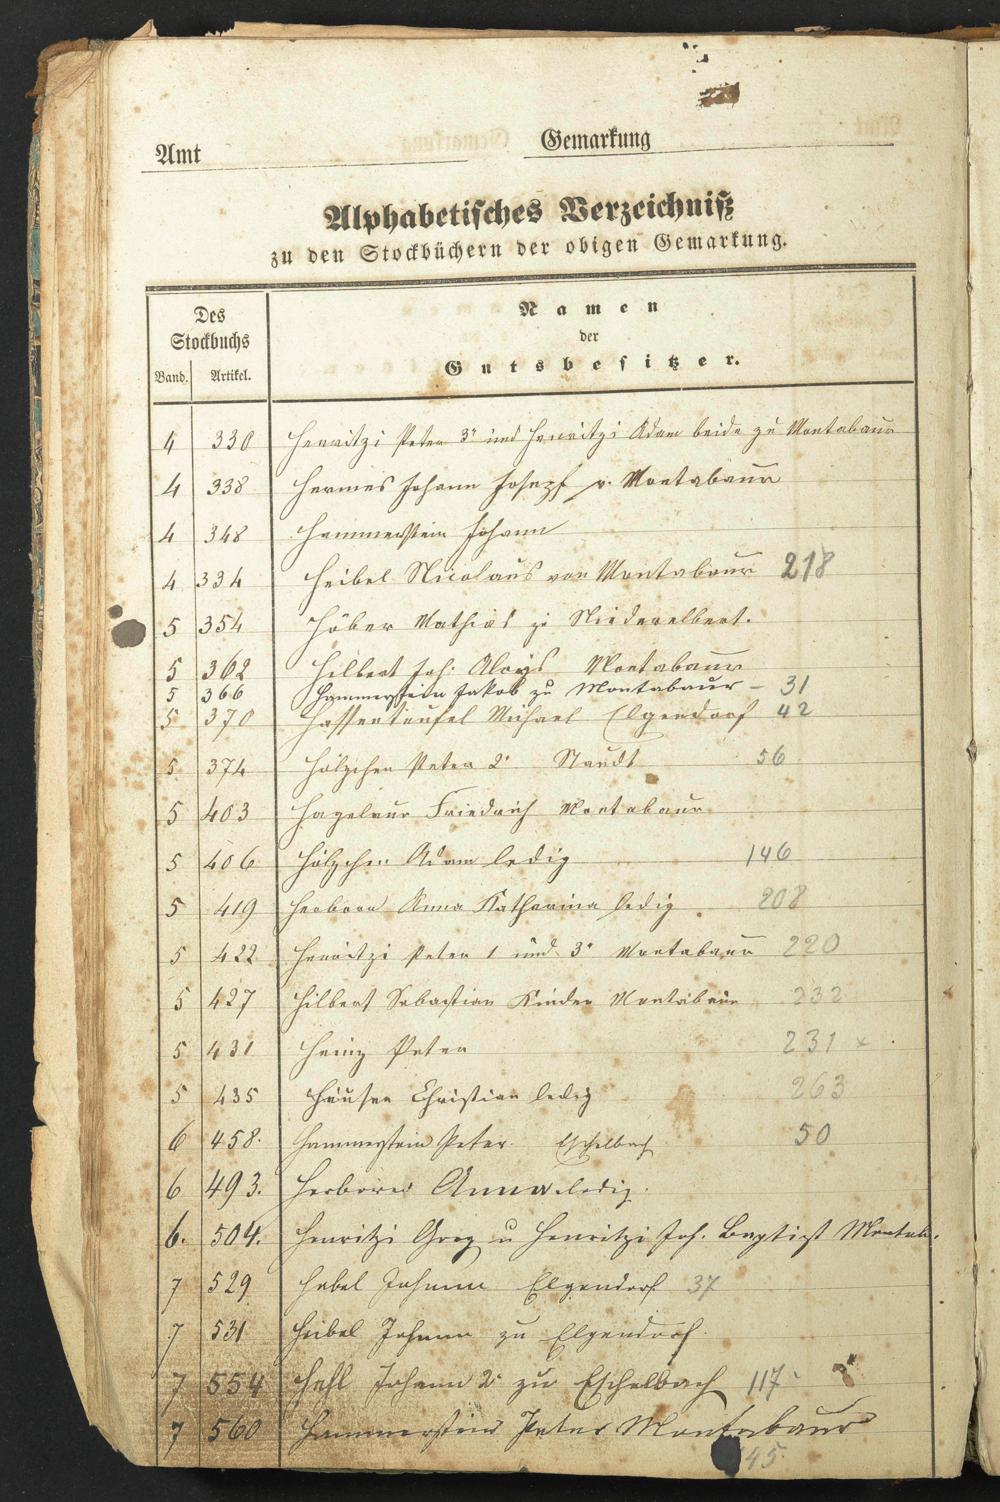 Amt
Gemarkung
Alphabetisches Verzeichniß
zu den Stockbüchern der obigen Gemarkung.
Des
Stockbuchs
Band. Artikel.
Namen
der
Gutsbesitzer.
4 330 Henritzi Peter 3r und Henritzi Adam beide zu Montabaur
4 338 Hermes Johann Josepf v. Montabaur
4 348 Hammerstein Johann
4 334 Heibel Nicolaus von Montabaur 218
5 354 Höber Mathias zu Niederelbert.
5 362 Hilbert Joh. Aloys Montabaur
5 366 Hammerstein Jakob zu Montabaur – 31
5 370 Hassenteufel Michael Elgendorf 42
5 374 Hölzchen Peter 2r Staudt 56
5 403 Hagelaur Friedrich Montabaur
5 406 Hölzchen Adam ledig 146
5 419 Herborn Anna Katharina ledig 208
5 422 Henritzi Peter 1 und 3r Montabaur 220
5 427 Hilbert Sebastian Kinder Montabaur 232
5 431 Heinz Peter 231 x
5 435 Häuser Christian ledig 263
6 458. Hammerstein Peter. Eschelbach 50
6 493. Herborn Anna ledig.
6. 504. Henritzi Greg u Henritzi Joh. Baptist Montab.
7 529 Hebel Johann Elgendorf 37
7 531 Heibel Johann zu Elgendorf.
7 554 Hehl Johann 2r zu Eschelbach 117
7 560 Hammerstein Peter Montabaur
145.